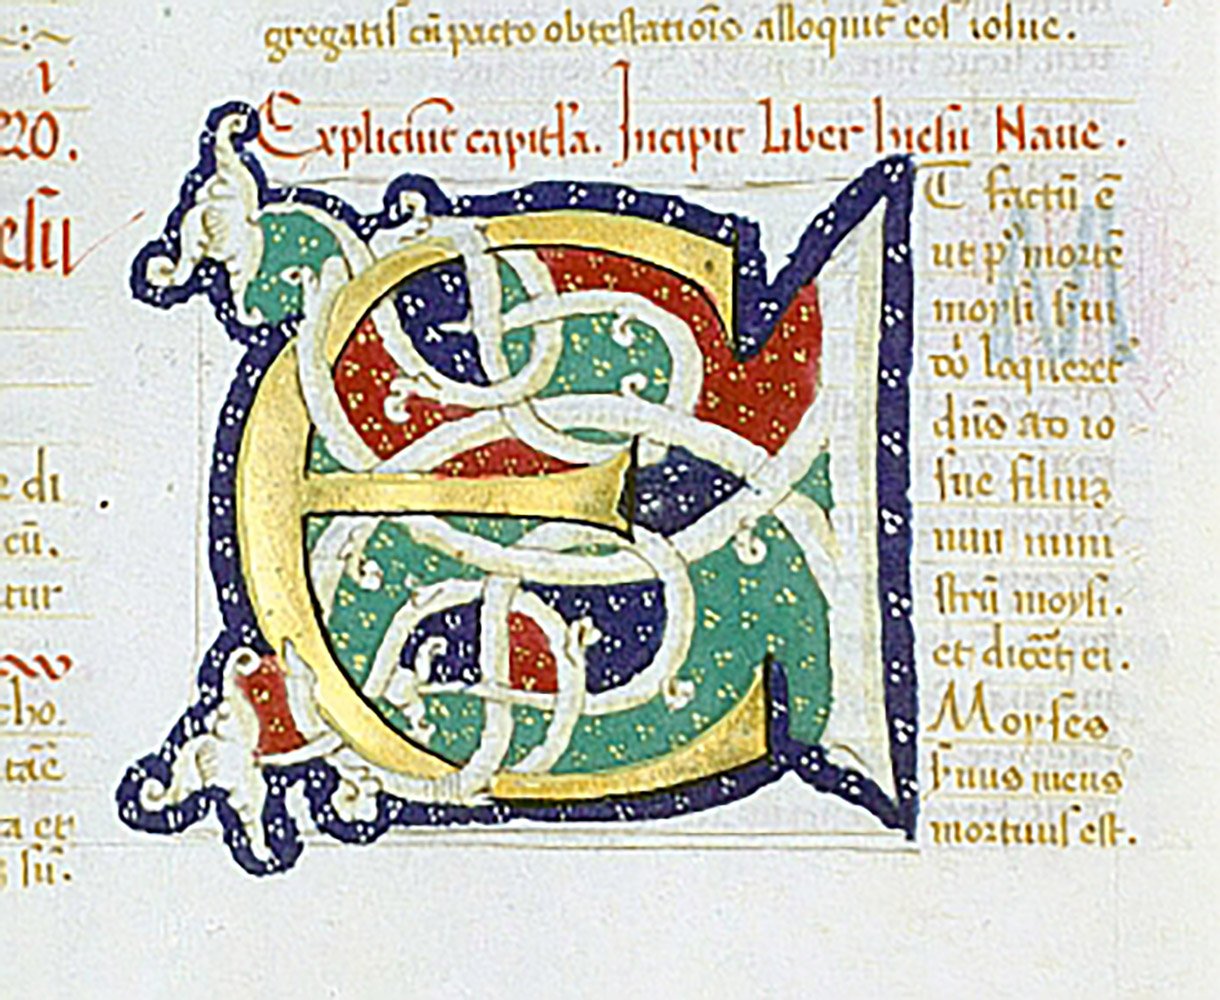 gregatis cū pacto obtestatiōis alloquit̄ eos iosue.
Expliciūt capitl'a. Incipit Liber hiesu Naue.
i
zo.
esu
E
T factū ē
ut p' mortē
moysi s̄ui
dō loqueret'
dn̄s ad io
sue filiuz
nun mini
strū moysi.
et dicēt ei.
Moyses
s̄uus meus
mortuus est.
e di
cū.
tur
cho.
tāē
ta et
sū.